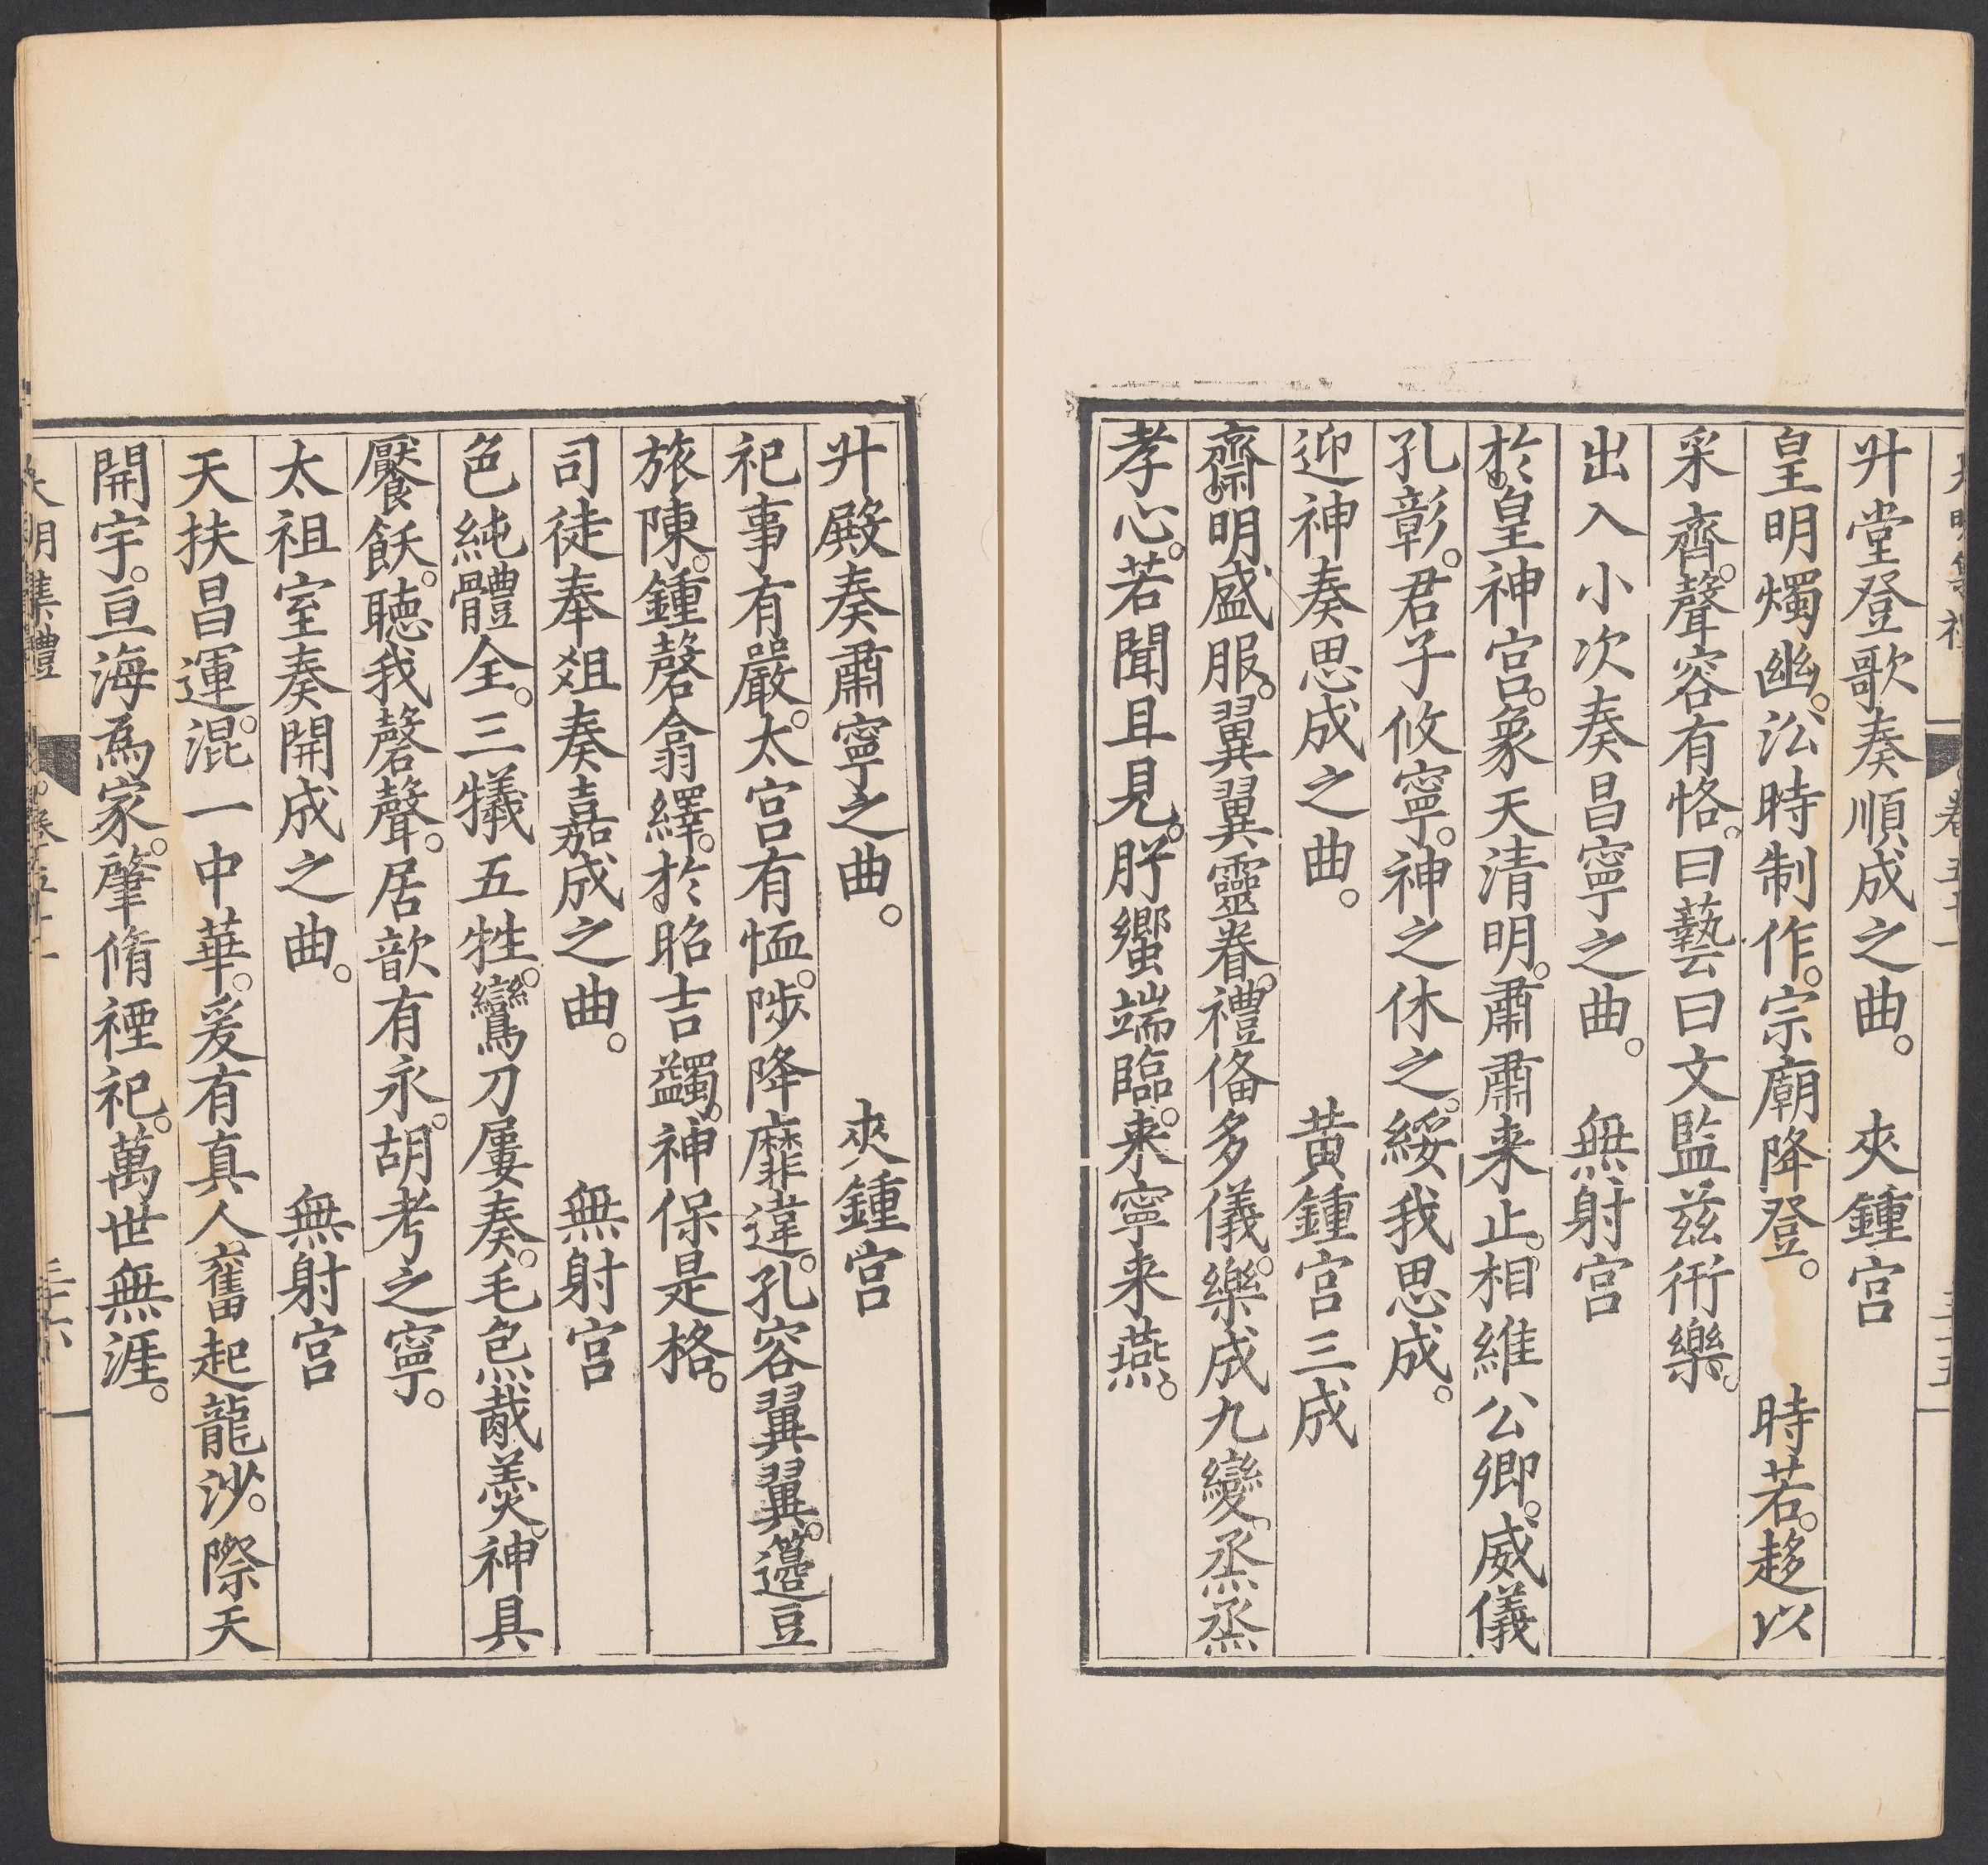 升堂登歌奏順成之曲。 夾鍾宮
皇明燭幽。㳂時制作。宗廟降登。 時若。趍以
采齊。聲容有恪。曰藝曰文監茲衎樂。
出入小次奏昌寧之曲。 無射宮
於。皇神宮。象天清明。肅肅来止。相維公卿。威儀
孔彰。君子攸寧。神之休之。綏我思成。
迎神奏思成之曲。 黃鍾宮三成
齋。明盛服。翼翼靈眷。禮俻多儀。樂成九變。烝烝
孝心。若聞且見。肸蠁端臨。来寧来燕。
大明集禮 卷五十一 三十五
升殿奏肅寧之曲。 夾鍾宮
祀事有嚴。太宮有恤。陟降靡違。孔容翼翼。籩豆
旅陳。鍾磬翕繹。於昭吉蠲。神保是格。
司徒奉俎奏嘉成之曲。 無射宮
色純體全。三犧五牲。鸞刀屢奏。毛炰胾羹。神具
饜飫。聽我磬聲。居歆有永。胡考之寧。
太祖室奏開成之曲。 無射宮
天扶昌運。混一中華。爰有真人。奮起龍沙。際天
開宇。亘海爲家。肇脩禋祀。萬世無涯。
大明集禮 卷五十一 三十六